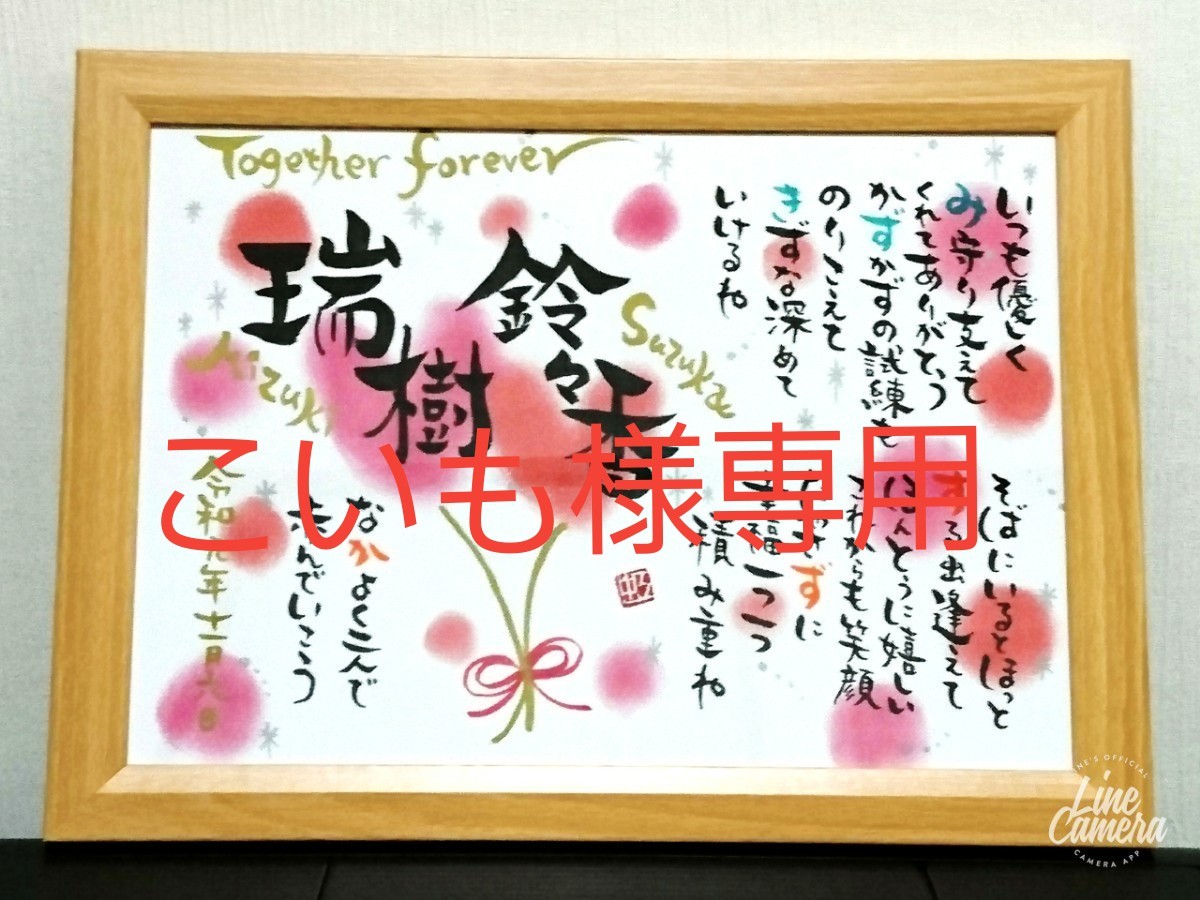 Together forever
瑞樹
Mizuki
鈴々香
Suzuka
いつも優しく
み守り支えて
くれてありがとう
かずかずの試練も
のりこえて
きずな深めて
いけるね
そばにいるとほっと
する出逢えて
ほんとうに嬉しい
これからも笑顔
たやさずに
幸福一つ一つ
積み重ね
なかよく二人で
歩んでいこう
令和元年十一月六日
こいも様専用
LINE'S OFFICIAL
Line Camera
CAMERA APP